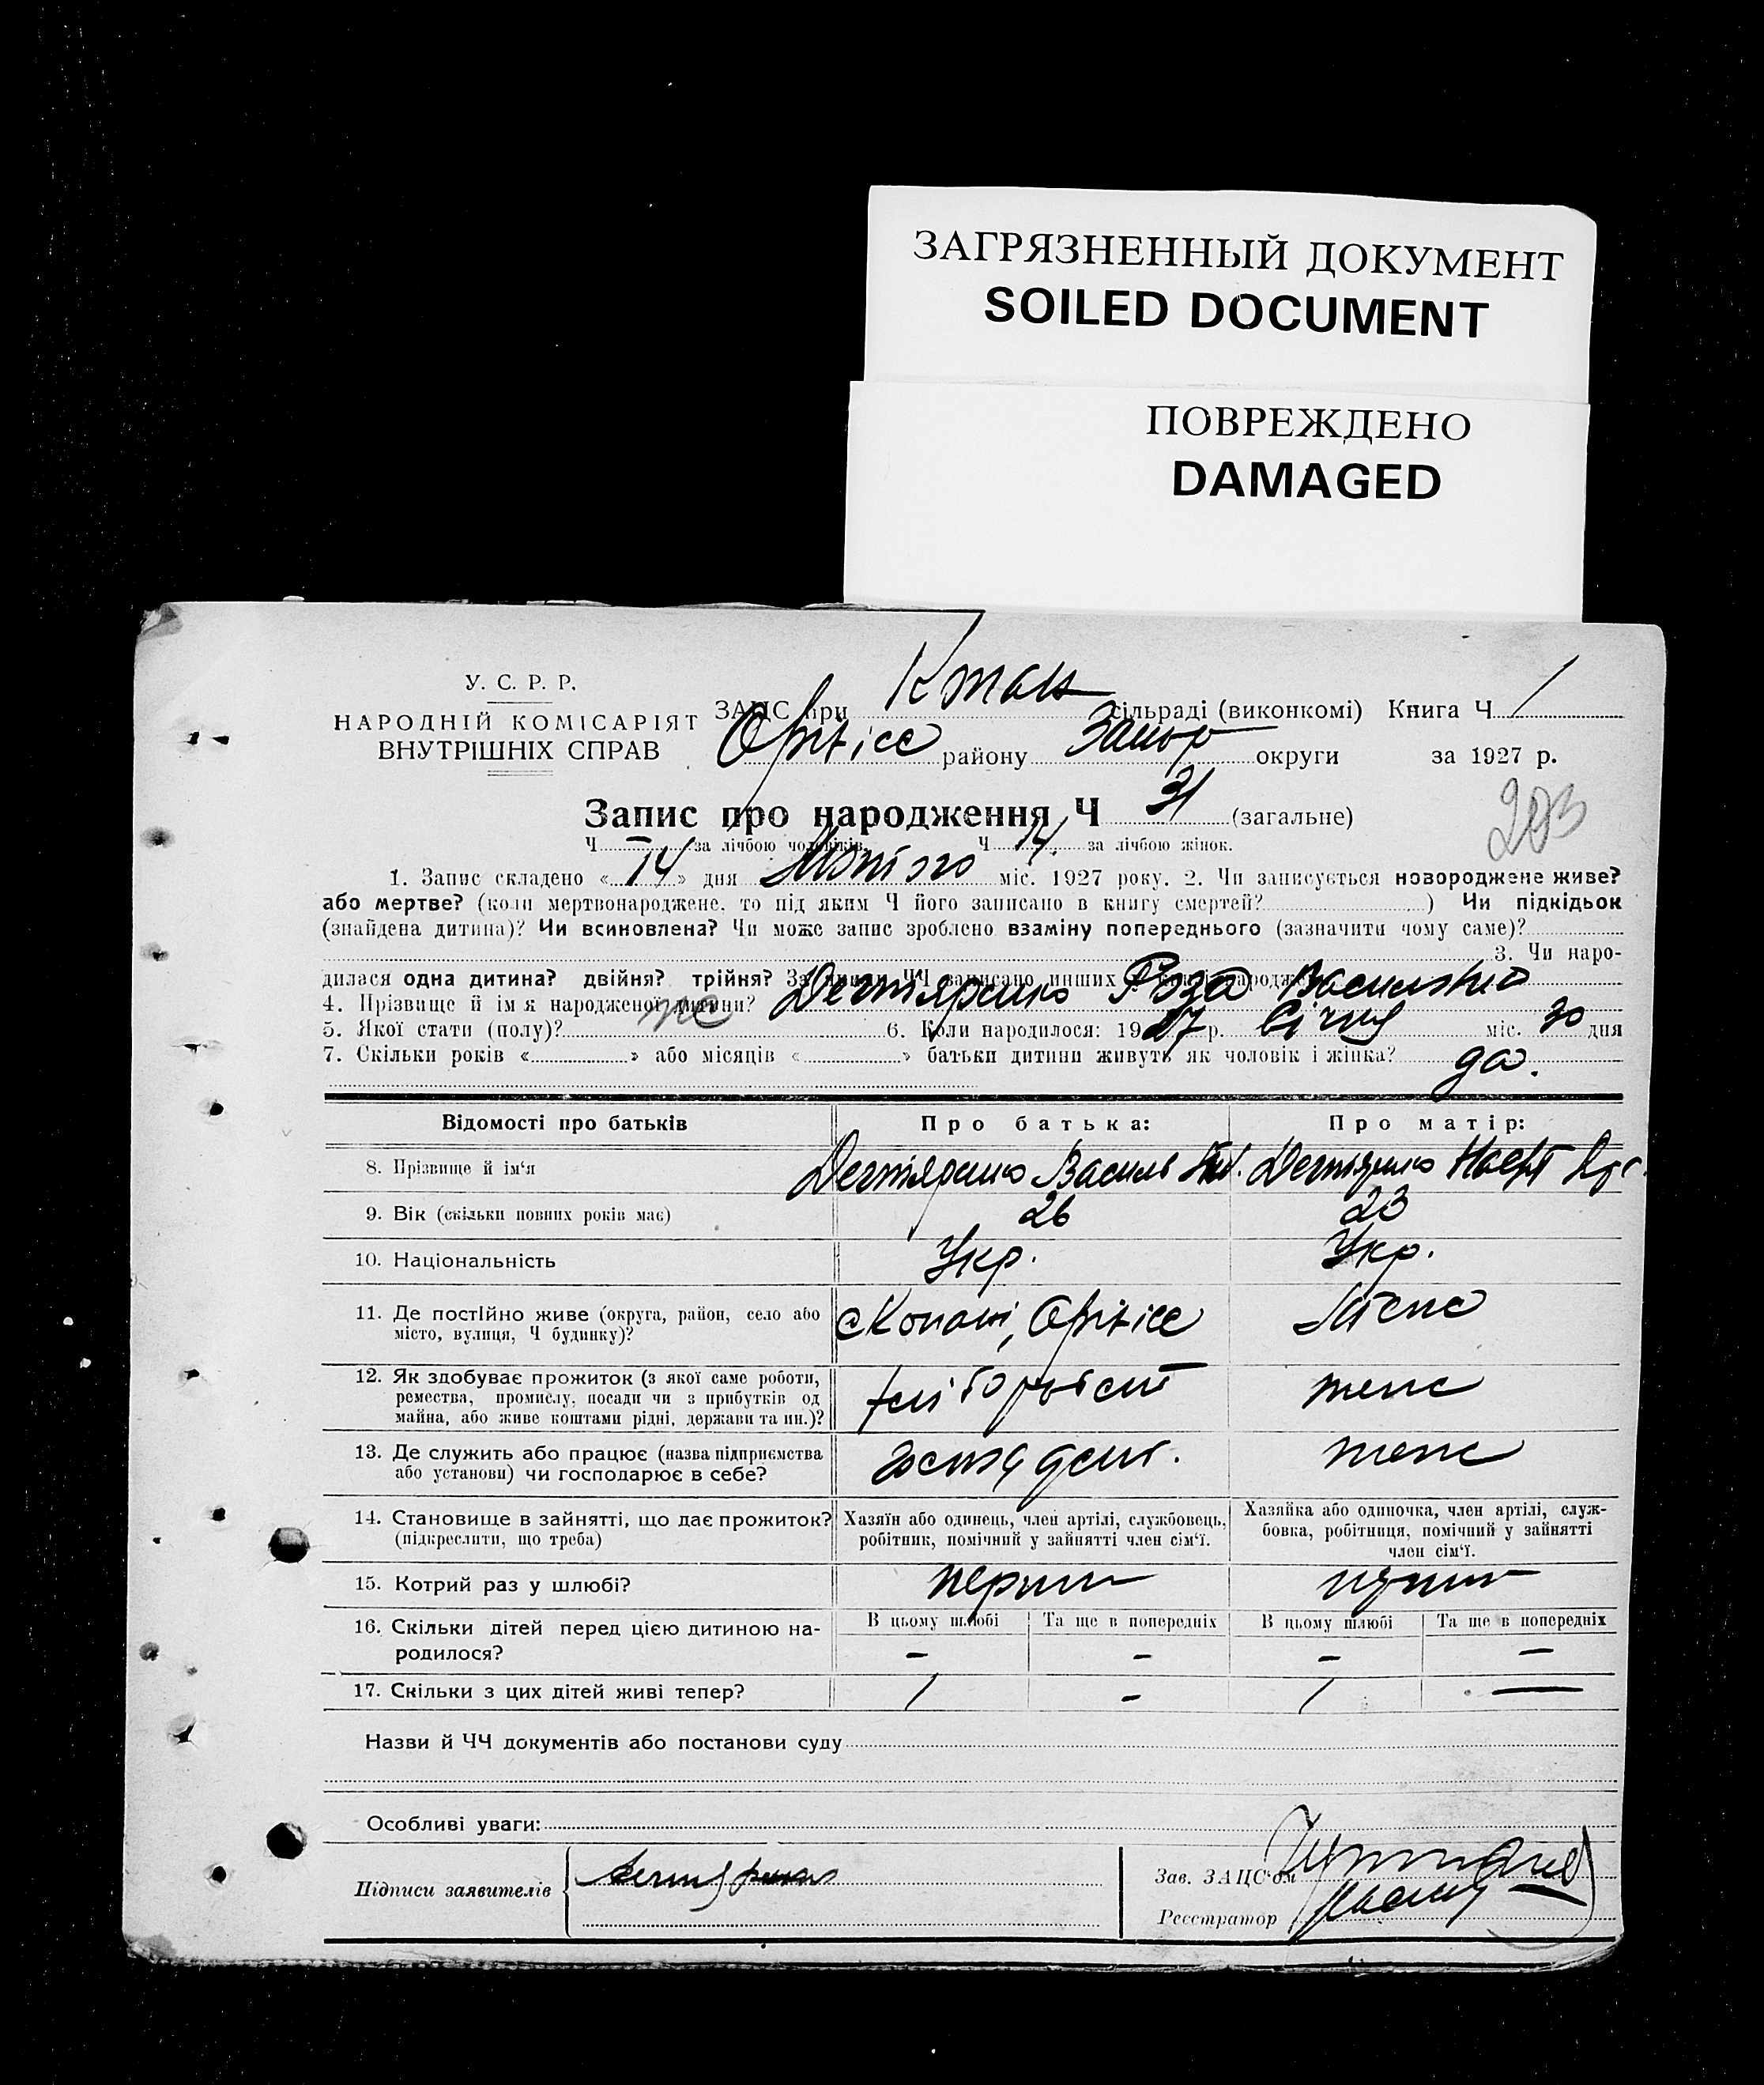 ЗАГРЯЗНЕННЫЙ ДОКУМЕНТ
SOILED DOCUMENT
ПОВРЕЖДЕНО
DAMAGED
У. С. Р. Р.
НАРОДНІЙ КОМІСАРІЯТ
ВНУТРІШНІХ СПРАВ
ЗАЦС при сільраді (виконкомі) Книга Ч 1
району Запор округи за 1927 р.
Запис про народження Ч 31 (загальне)
Ч — за лічбою чоловіків. Ч 14. за лічбою жінок.
1. Запис складено « 14 » дня Лютого міс. 1927 року. 2. Чи записується новороджене живе?
або мертве? (коли мертвонароджене, то під яким Ч його записано в книгу смертей? ) Чи підкідьок
(знайдена дитина)? Чи всиновлена? Чи може запис зроблено взаміну попереднього (зазначити чому саме)?
3. Чи наро-
дилася одна дитина? двійня? трійня? За якими ЧЧ записано инших
4. Прізвище й ім'я народженої дитини? Дегтяренко Роза Васильевна
5. Якої стати (полу)? жс 6. Коли народилося: 1927 р. Січня міс. 30 дня
7. Скільки років « » або місяців « » батьки дитини живуть як чоловік і жінка? да.
Відомості про батьків
Про батька:
Про матір:
8. Прізвище й ім'я
Дегтяренко Василь
Дегтяренко Насті
9. Вік (скільки повних років має)
26
23
10. Національність
Укр.
Укр.
11. Де постійно живе (округа, район, село або
місто, вулиця, Ч будинку)?
12. Як здобуває прожиток (з якої саме роботи,
ремества, промислу, посади чи з прибутків од
майна, або живе коштами рідні, держави та ин.)?
хлібороб
тене
13. Де служить або працює (назва підприємства
або установи) чи господарює в себе?
тене
14. Становище в зайнятті, що дає прожиток?
(підкреслити, що треба)
Хазяїн або одинець, член артілі, службовець,
робітник, помічний у зайнятті член сім'ї.
Хазяйка або одиночка, член артілі, служ-
бовка, робітниця, помічний у зайнятті
член сім'ї.
15. Котрий раз у шлюбі?
перши
16. Скільки дітей перед цією дитиною на-
родилося?
В цьому шлюбі
Та ще в попередніх
В цьому шлюбі
Та ще в попередніх
– – – —
17. Скільки з цих дітей живі тепер?
1 – 1 —
Назви й ЧЧ документів або постанови суду
Особливі уваги:
Підписи заявителів
Дегтяренко
Зав. ЗАЦС'ом
Реєстратор